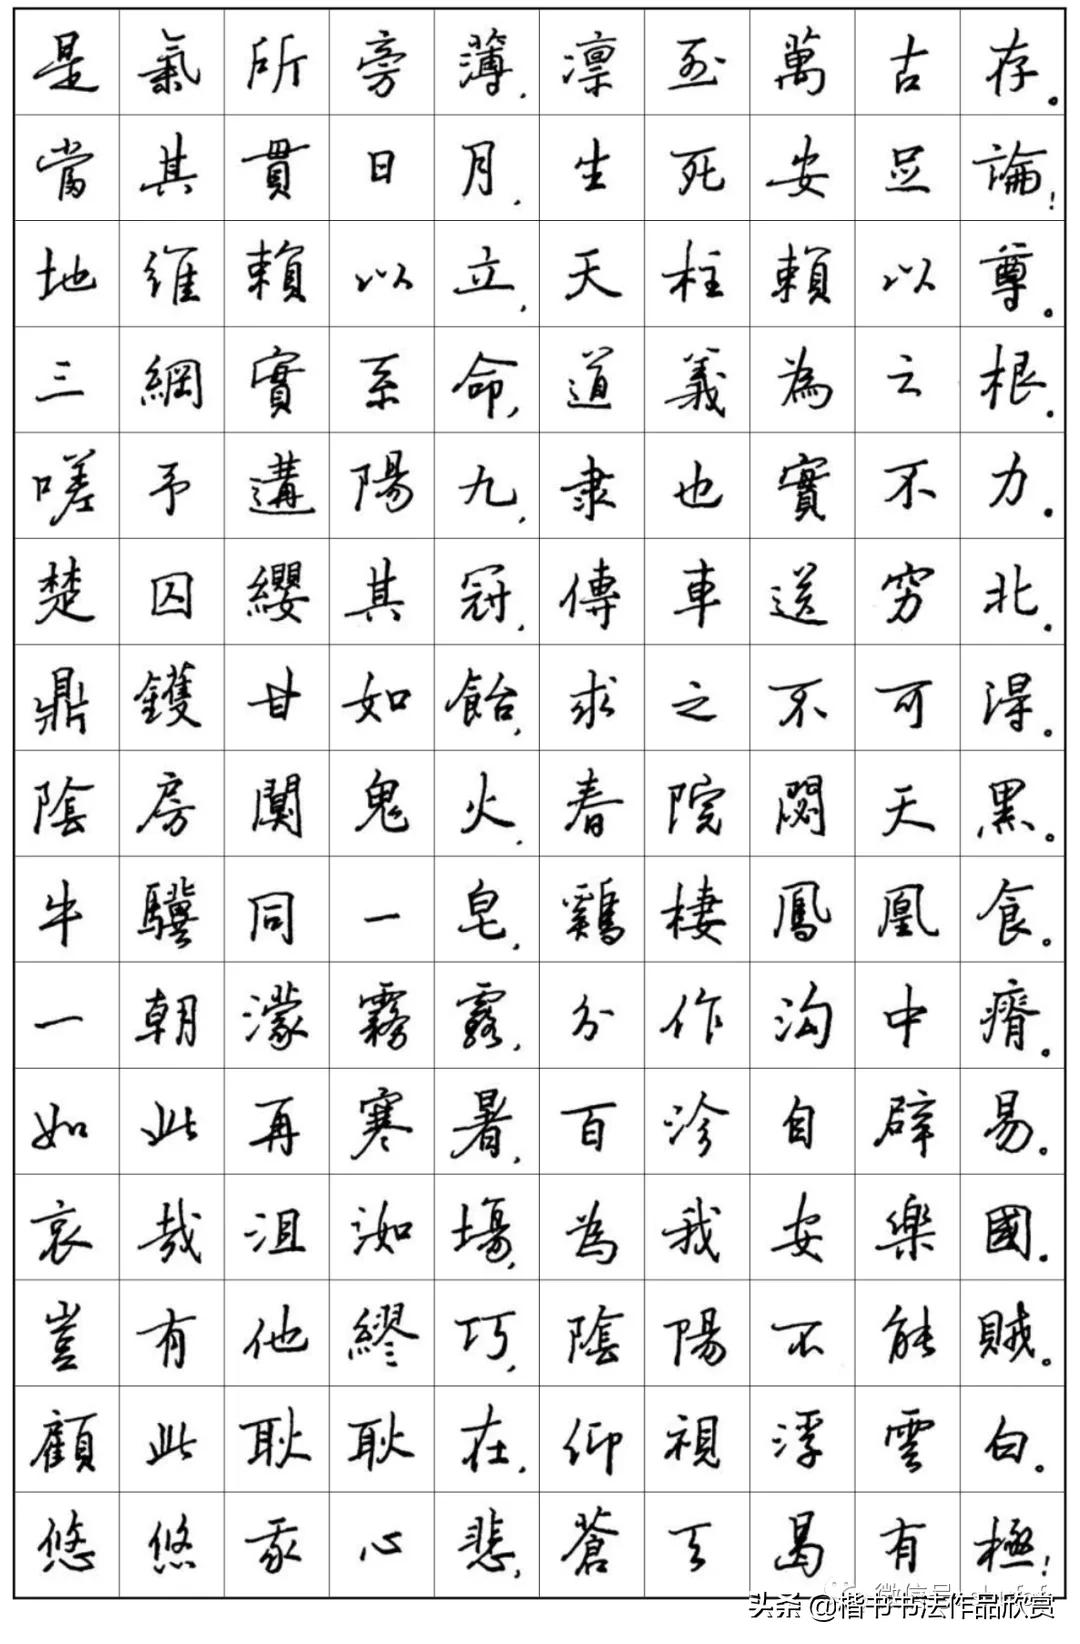 是氣所旁薄，凛烈萬古存。
當其貫日月，生死安足論！
地維賴以立，天柱賴以尊。
三綱實系命，道義為之根。
嗟予遘陽九，隶也實不力。
楚囚纓其冠，傳車送窮北。
鼎鑊甘如飴，求之不可得。
陰房闃鬼火，春院閟天黑。
牛驥同一皂，鷄棲鳳凰食。
一朝濛霧露，分作沟中瘠。
如此再寒暑，百沴自辟易。
哀哉沮洳場，為我安樂國。
豈有他繆巧，陰陽不能賊。
顧此耿耿在，仰視浮雲白。
悠悠我心悲，蒼天曷有極！
头条 @楷书书法作品欣赏